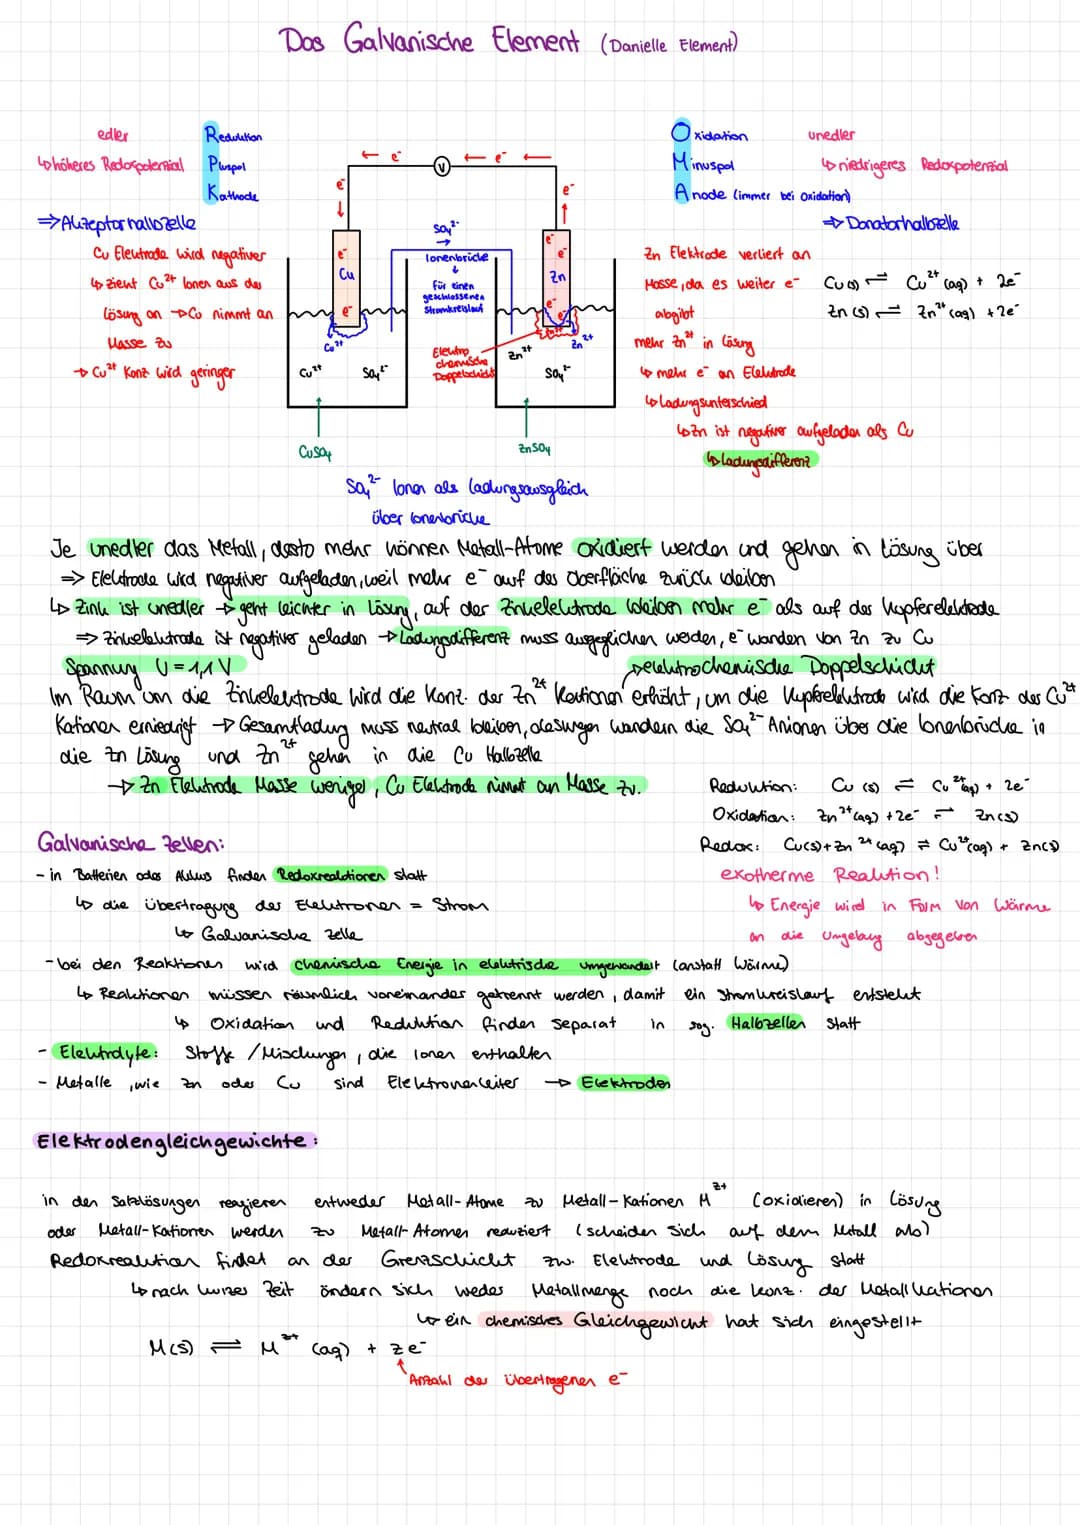 Das Galvanische Element (Danielle Element)
edler
↳ höheres Redoxpotenzial
Reduktion
Pluspol
Kathode
⇒ Akzeptorhalbzelle
Cu Elektrode wird negativer
↳ zieht Cu²⁺ Ionen aus der
Lösung an → Cu nimmt an
Masse zu
→ Cu²⁺ Konz wird geringer
← e⁻
V
← e⁻ ←
e⁻
e⁻
Cu
e⁻
Cu²⁺
Cu²⁺
SO₄²⁻
CuSO₄
SO₄²⁻
→
Ionenbrücke
↓
Für einen
geschlossenen
Stromkreislauf
Elektro
chemische
Doppelschicht
e⁻
e⁻
e⁻
Zn
e⁻
e⁻
Zn²⁺
Zn²⁺
SO₄²⁻
ZnSO₄
SO₄²⁻ Ionen als Ladungsausgleich
über Ionenbrücke
Oxidation
Minuspol
Anode (immer bei Oxidation)
unedler
↳ niedrigeres Redoxpotenzial
⇒ Donatorhalbzelle
Zn Elektrode verliert an
Masse, da es weiter e⁻
abgibt
mehr Zn²⁺ in Lösung
↳ mehr e⁻ an Elektrode
↳ Ladungsunterschied
↳ Zn ist negativer aufgeladen als Cu
↳ Ladungsdifferenz
Cu (s) ⇌ Cu²⁺ (aq) + 2e⁻
Zn (s) ⇌ Zn²⁺ (aq) + 2e⁻
Je unedler das Metall, desto mehr können Metall-Atome oxidiert werden und gehen in Lösung über
⇒ Elektrode wird negativer aufgeladen, weil mehr e⁻ auf der Oberfläche zurück bleiben
↳ Zink ist unedler → geht leichter in Lösung, auf der Zinkelektrode bleiben mehr e⁻ als auf der Kupferelektrode
⇒ Zinkelektrode ist negativer geladen → Ladungsdifferenz muss ausgeglichen werden, e⁻ wandern von Zn zu Cu
Spannung U = 1,1 V
→ elektrochemische Doppelschicht
Im Raum um die Zinkelektrode wird die Konz. der Zn²⁺ Kationen erhöht, um die Kupferelektrode wird die Konz der Cu²⁺
Kationen erniedrigt → Gesamtladung muss neutral bleiben, deswegen wandern die SO₄²⁻ Anionen über die Ionenbrücke in
die Zn Lösung und Zn²⁺ gehen in die Cu Halbzelle
→ Zn Elektrode Masse weniger, Cu Elektrode nimmt an Masse zu.
Reduktion: Cu (s) ⇌ Cu²⁺(aq) + 2e⁻
Oxidation: Zn²⁺(aq) + 2e⁻ ⇌ Zn(s)
Redox: Cu(s) + Zn²⁺(aq) ⇌ Cu²⁺(aq) + Zn(s)
exotherme Reaktion!
↳ Energie wird in Form von Wärme
an die Umgebung abgegeben
Galvanische Zellen:
- in Batterien oder Akkus finden Redoxreaktionen statt
↳ die Übertragung der Elektronen = Strom
↳ Galvanische Zelle
- bei den Reaktionen wird chemische Energie in elektrische umgewandelt (anstatt Wärme)
↳ Reaktionen müssen räumlich voneinander getrennt werden, damit ein Stromkreislauf entsteht
↳ Oxidation und Reduktion finden separat in sog. Halbzellen statt
- Elektrolyte: Stoffe / Mischungen, die Ionen enthalten
- Metalle, wie Zn oder Cu sind Elektronenleiter → Elektroden
Elektrodengleichgewichte:
in den Salzlösungen reagieren entweder Metall-Atome zu Metall-Kationen Mᶻ⁺ (oxidieren) in Lösung
oder Metall-Kationen werden zu Metall-Atomen reduziert (scheiden sich auf dem Metall ab)
Redoxreaktion findet an der Grenzschicht zw. Elektrode und Lösung statt
↳ nach kurzer Zeit ändern sich weder Metallmenge noch die Konz. der Metallkationen
↳ ein chemisches Gleichgewicht hat sich eingestellt
M(s) ⇌ Mᶻ⁺ (aq) + ze⁻
Anzahl der übertragenen e⁻